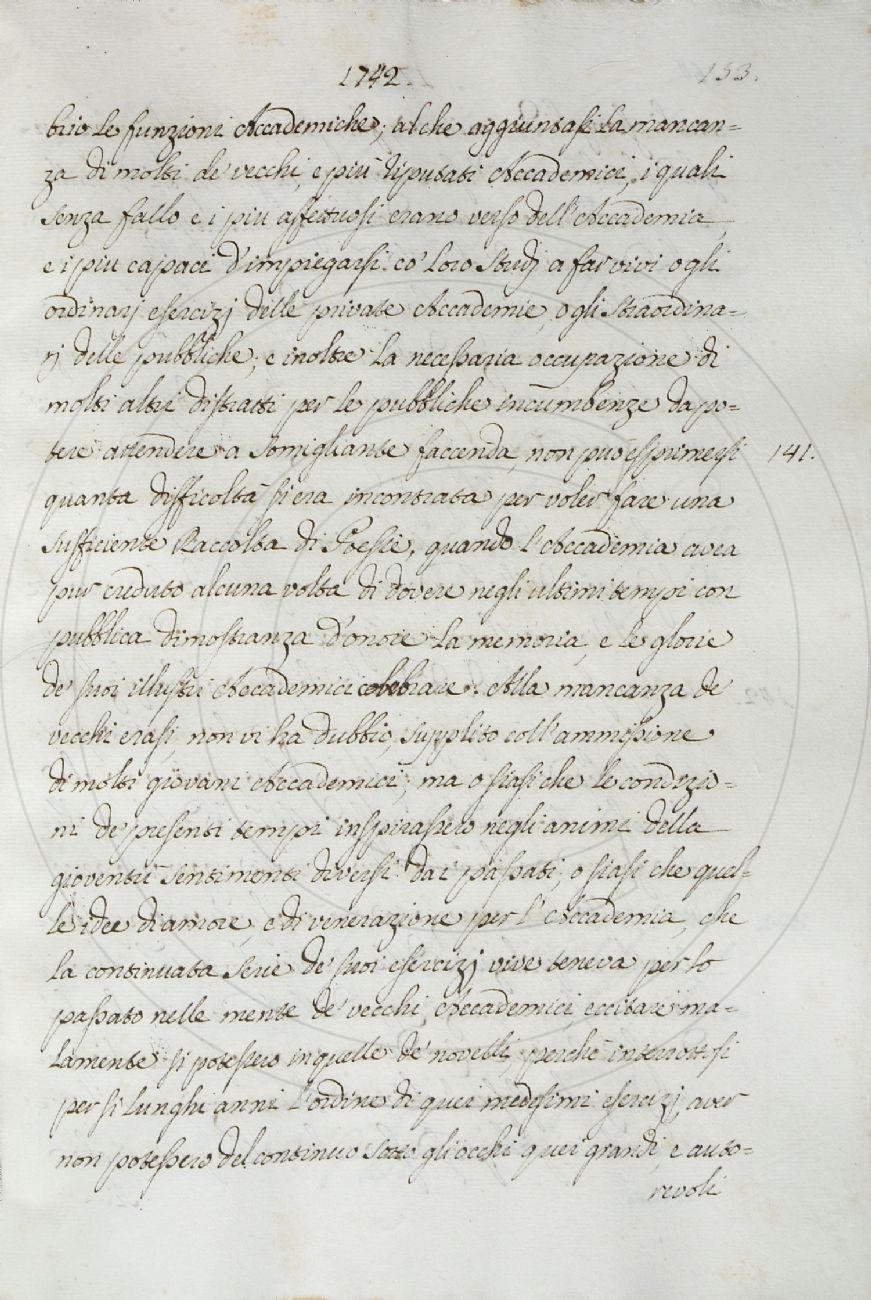 1742. 153.
brio le funzioni Accademiche; al che aggiuntasi la mancan=
za di molti de' vecchi, e più riputati Accademici, i quali
senza fallo e i piu affettuosi erano verso dell'Accademia,
e i piu capaci d'impiegarsi co' loro Studj a far vivi o gli
ordinarj esercizj delle private Accademie, o gli straordina=
rj delle pubbliche; e inoltre la necessaria occupazione di
molti altri distratti per le pubbliche incumbenze da po=
tere attendere a somigliante faccenda, non può esprimersi 141.
quanta difficoltà si era incontrata per voler fare una
sufficiente Raccolta di Poesie, quando l'Accademia avea
pur creduto alcuna volta di dovere negli ultimi tempi con
pubblica dimostranza d'onore la memoria, e le glorie
de' suoi illustri Accademici celebrare. Alla mancanza de'
vecchi erasi, non vi ha dubbio, supplito coll'ammissione
di molti giovani Accademici; ma o siasi che le condizio=
ni de' presenti tempi inspirassero negli animi della
gioventù sentimenti diversi dai passati; o siasi che quel=
le idee di amore, e di venerazione per l'Accademia, che
la continuata serie de' suoi esercizj vive teneva per lo
passato nelle mente de' vecchi Accademici, eccitare ma=
lamente si potessero in quelle de' novelli, perchè interrottosi
per sì lunghi anni l'ordine di quei medesimi esercizj, aver
non potessero del continuo sotto gli occhi quei grandi, e auto=
revoli